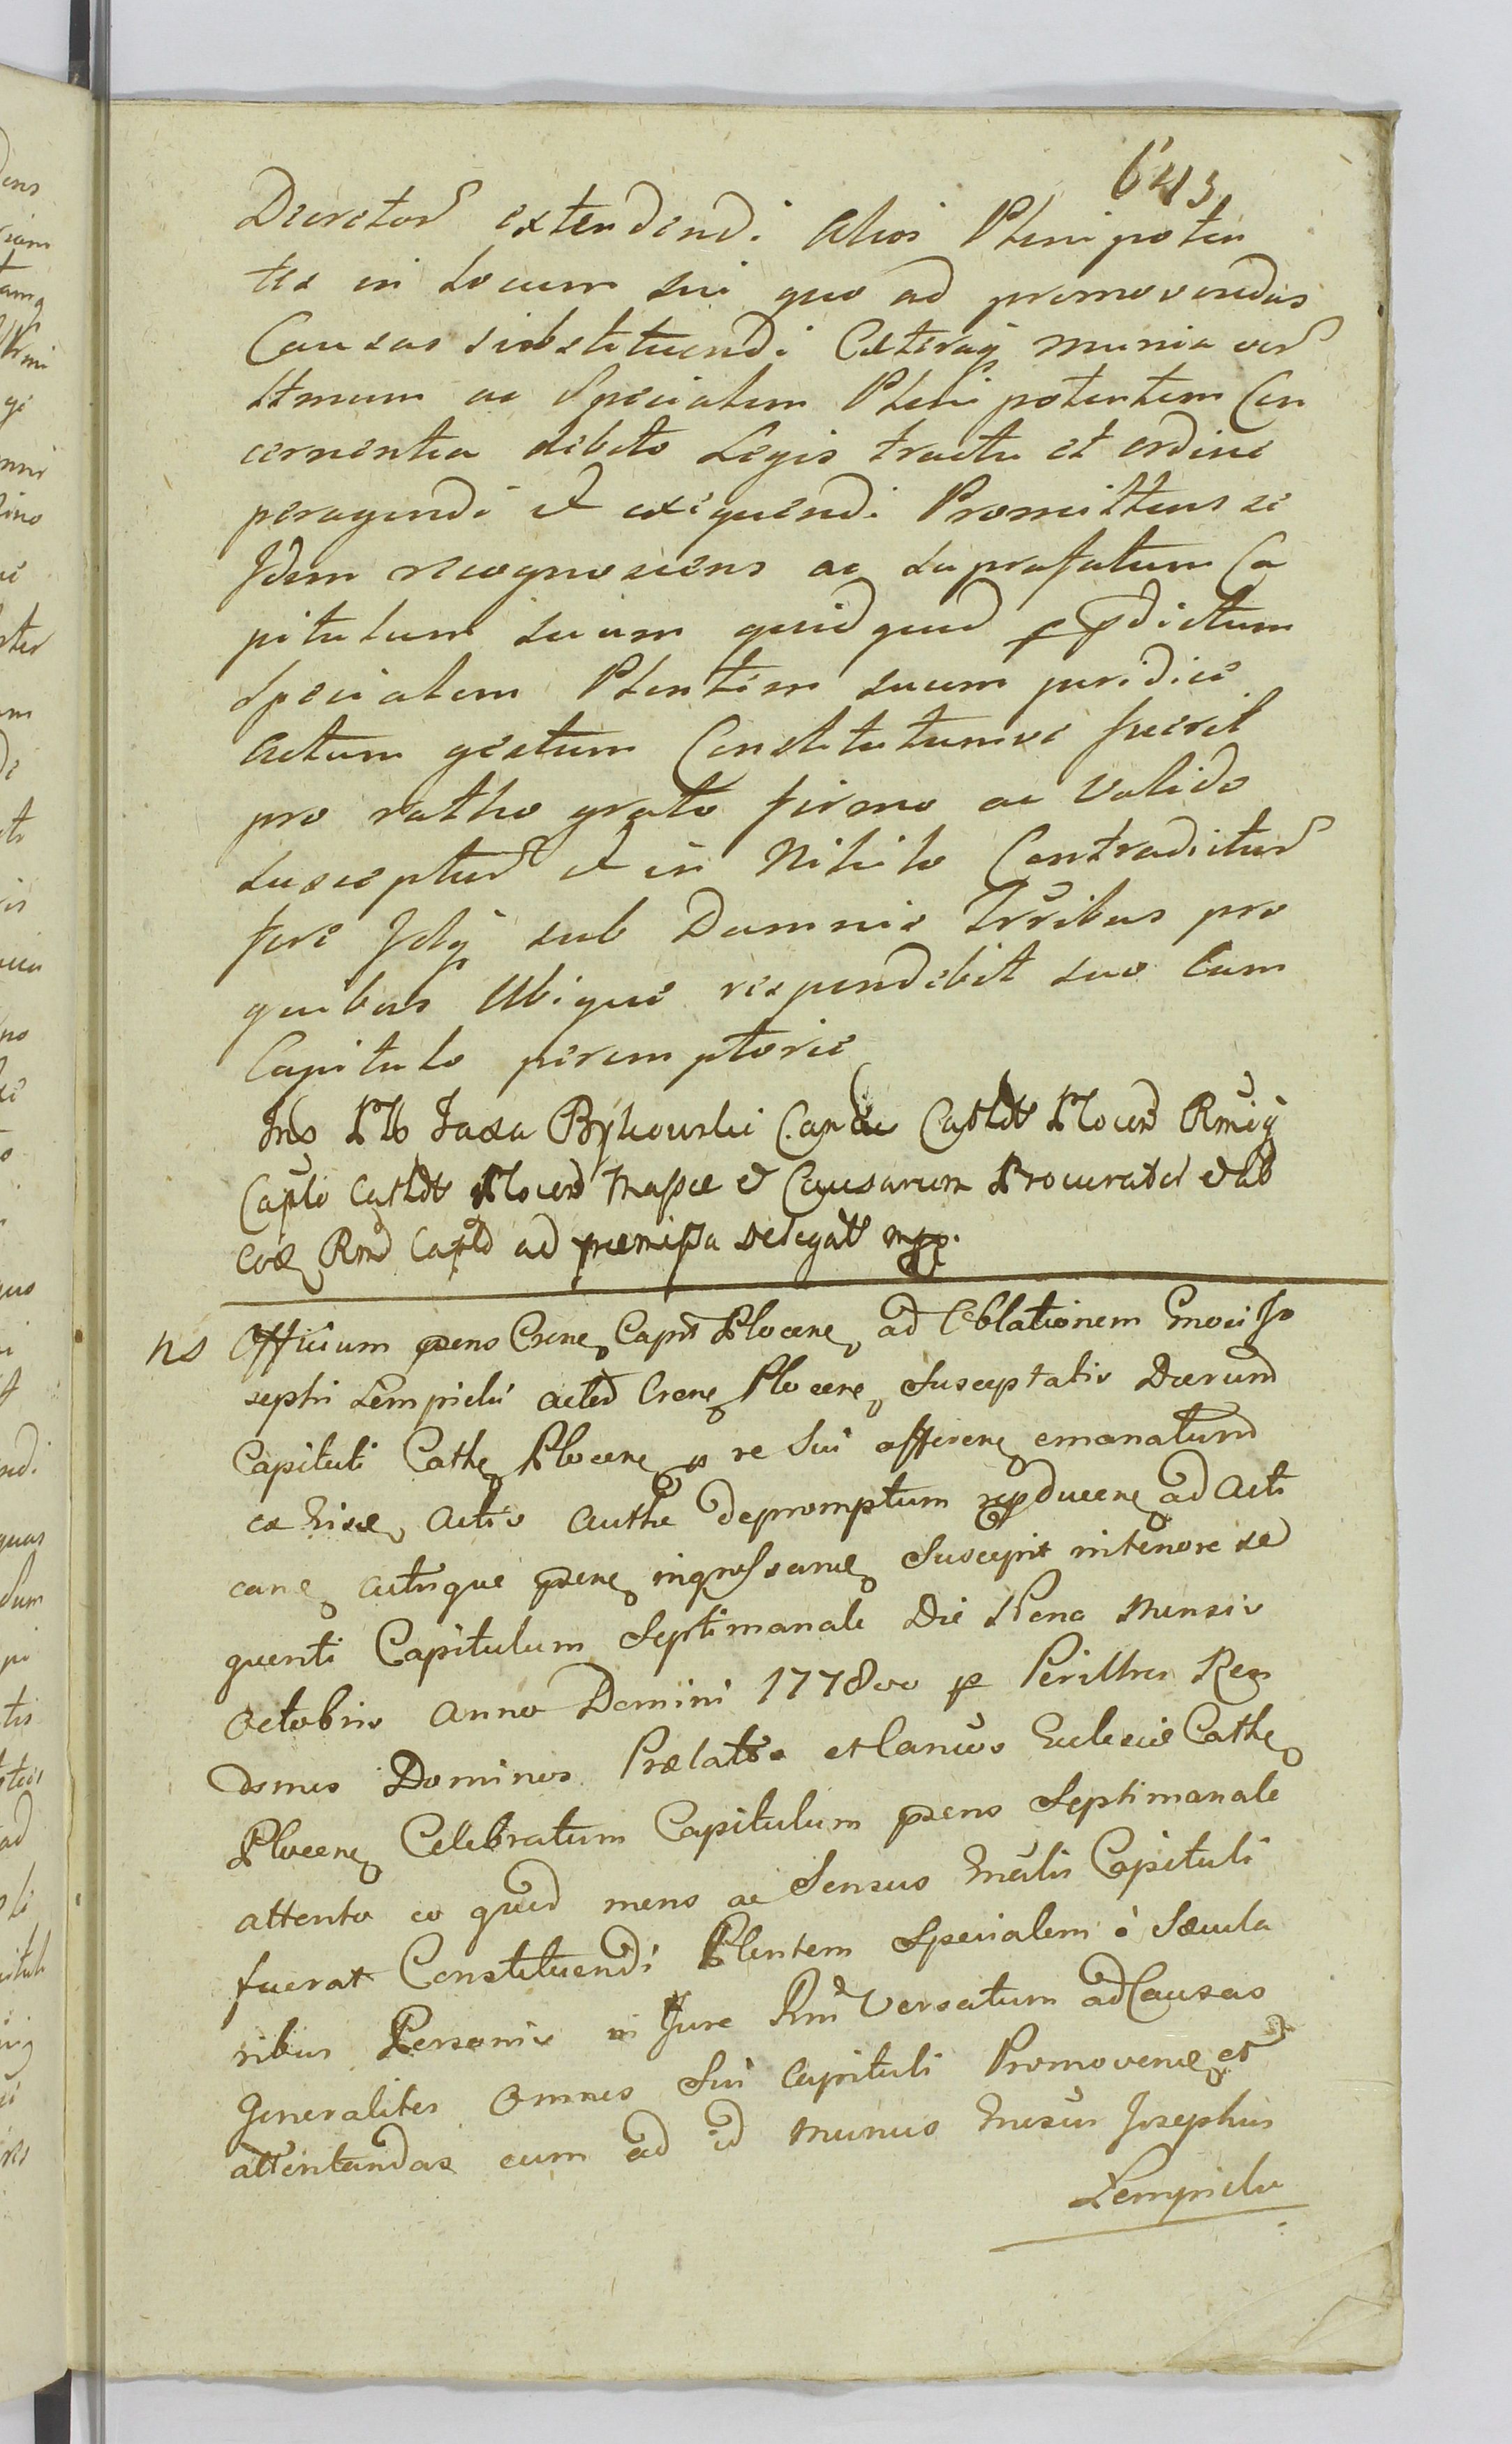 643
Decretor extendendi Alios Plenipoten
tes in Locum sui quo ad promovendas
Causas substituendi Caeteraq munia ver
ac Specialem Plenipotentem Con
cernentia debito Legis tractu et ordine
peragendi et exequendi Promittens se
Idem recognoscens ac suprafatum Ca
pitulum suum quidquid p pdictum
Specialem Plentem suum juridice
Actum gestum Constitutumve fuerit
pro ratho grato firmo ac Valido
suscepturum et in Nihilo Contradictur
fore Idq sub Damnis Trribus pro
quibus Ubique respondebit suo Cum
Capitulo peremptorie
Jaxa Bykowski Can Cathdt Plocen Rmiq
Caplo Cathdt Plocen et Causarum Procurator et ab
eod Rmo Caplo ad praemissa delegatt mpp.
ns Officium psens Crene Capit Plocene ad Oblationem Gnosi Jo
sephi Lempicki acted Crene Plocene Susceptatis
Capituli Cathe Plocene p re Sui offerene emanatum
ex actis Authe depromptum repducene ad acti
cane actisque psene ingrossane Suscepit in tenore se
quenti Capitulum Septimanale Die Nona Mensis
Octobris Anno Domini 1778vo p Perilltres Ren
dsmos Dominos Praelatos et Canicos Ecclesiae Cathe
Plocene Celebratum Capitulum psens Septimanale
attento eo quod mens ac Sensus Capituli
fuerat Constituendi Plentem Specialem è Saecula
ribus Personis in Jure Versatum ad Causas
generaliter omnes Sui Capituli Promovene et
attentandas cum ad id munus Josephus
Lempicki